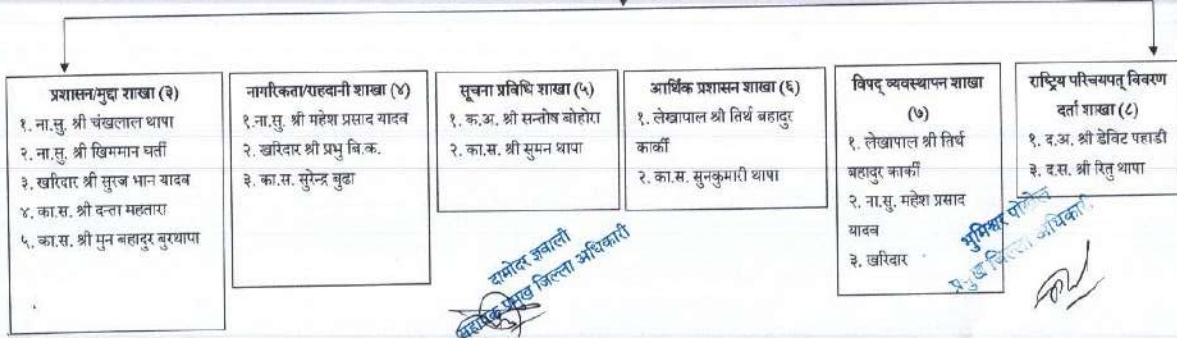 प्रशासन/मुद्दा शाखा (३)
१. ना.सु. श्री चंखलाल थापा
२. ना.सु. श्री खिममान घर्ती
३. खरिदार श्री सुरज भान यादव
४. का.स. श्री दन्ता महतारा
५. का.स. श्री मुन बहादुर बुरथापा
नागरिकता/राहदानी शाखा (४)
१.ना.सु. श्री महेश प्रसाद यादव
२. खरिदार श्री प्रभु बि.क.
३. का.स. सुरेन्द्र बुढा
सूचना प्रविधि शाखा (५)
१. क.अ. श्री सन्तोष बोहोरा
२. का.स. श्री सुमन थापा
आर्थिक प्रशासन शाखा (६)
१. लेखापाल श्री तिर्थ बहादुर
कार्की
२. का.स. सुनकुमारी थापा
विपद् व्यवस्थापन शाखा
(७)
१. लेखापाल श्री तिर्थ
बहादुर कार्की
२. ना.सु. महेश प्रसाद
यादव
३. खरिदार
राष्ट्रिय परिचयपत् विवरण
दर्ता शाखा (८)
१. द.अ. श्री डेविट पहाडी
३. द.स. श्री रितु थापा
दामोदर ज्ञवाली
सहायक प्रमुख जिल्ला अधिकारी
भुमिश्वर
प्रमुख जिल्ला अधिकारी